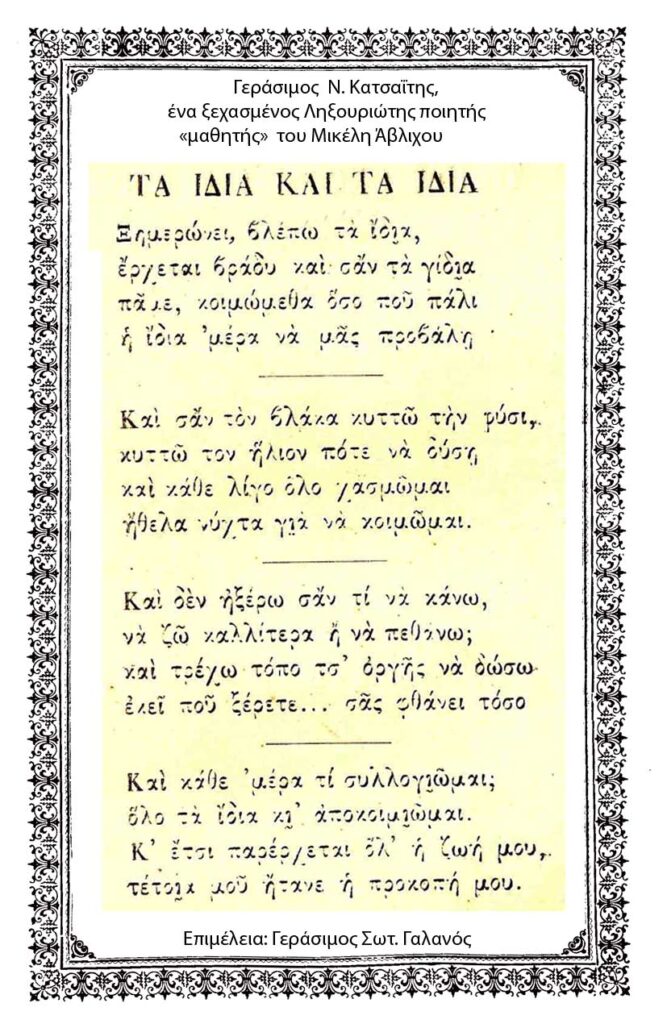 Γεράσιμος Ν. Κατσαΐτης,
ένα ξεχασμένος Ληξουριώτης ποιητής
«μαθητής» του Μικέλη Άβλιχου
ΤΑ ΙΔΙΑ ΚΑΙ ΤΑ ΙΔΙΑ
Ξημερώνει, βλέπω τὰ ἴδια,
ἔρχεται βράδυ καὶ σἂν τὰ γίδια
πᾶμε, κοιμώμεθα ὅσο ποῦ πάλι
ἡ ἴδια 'μέρα νὰ μᾶς προβάλῃ
Καὶ σἂν τὸν βλάκα κυττῶ τὴν φύσι,
κυττῶ τον ἥλιον πότε νὰ δύσῃ
καὶ κάθε λίγο ὅλο χασμῶμαι
ἤθελα νύχτα γιὰ νὰ κοιμῶμαι.
Καὶ δὲν ἠξέρω σἂν τί νὰ κάνω,
νὰ ζῶ καλλίτερα ἢ νὰ πεθάνω;
καὶ τρέχω τόπο τσ' ὀργῆς νὰ δώσω
ἐκεῖ ποῦ ξέρετε... σᾶς φθάνει τόσο
Καὶ κάθε 'μέρα τί συλλογιῶμαι;
ὅλο τὰ ἴδια κι' ἀποκοιμιῶμαι.
Κ' ἔτσι παρέρχεται ὅλ' ἡ ζωή μου,
τέτοια μοῦ ἤτανε ἡ προκοπή μου.
Επιμέλεια: Γεράσιμος Σωτ. Γαλανός